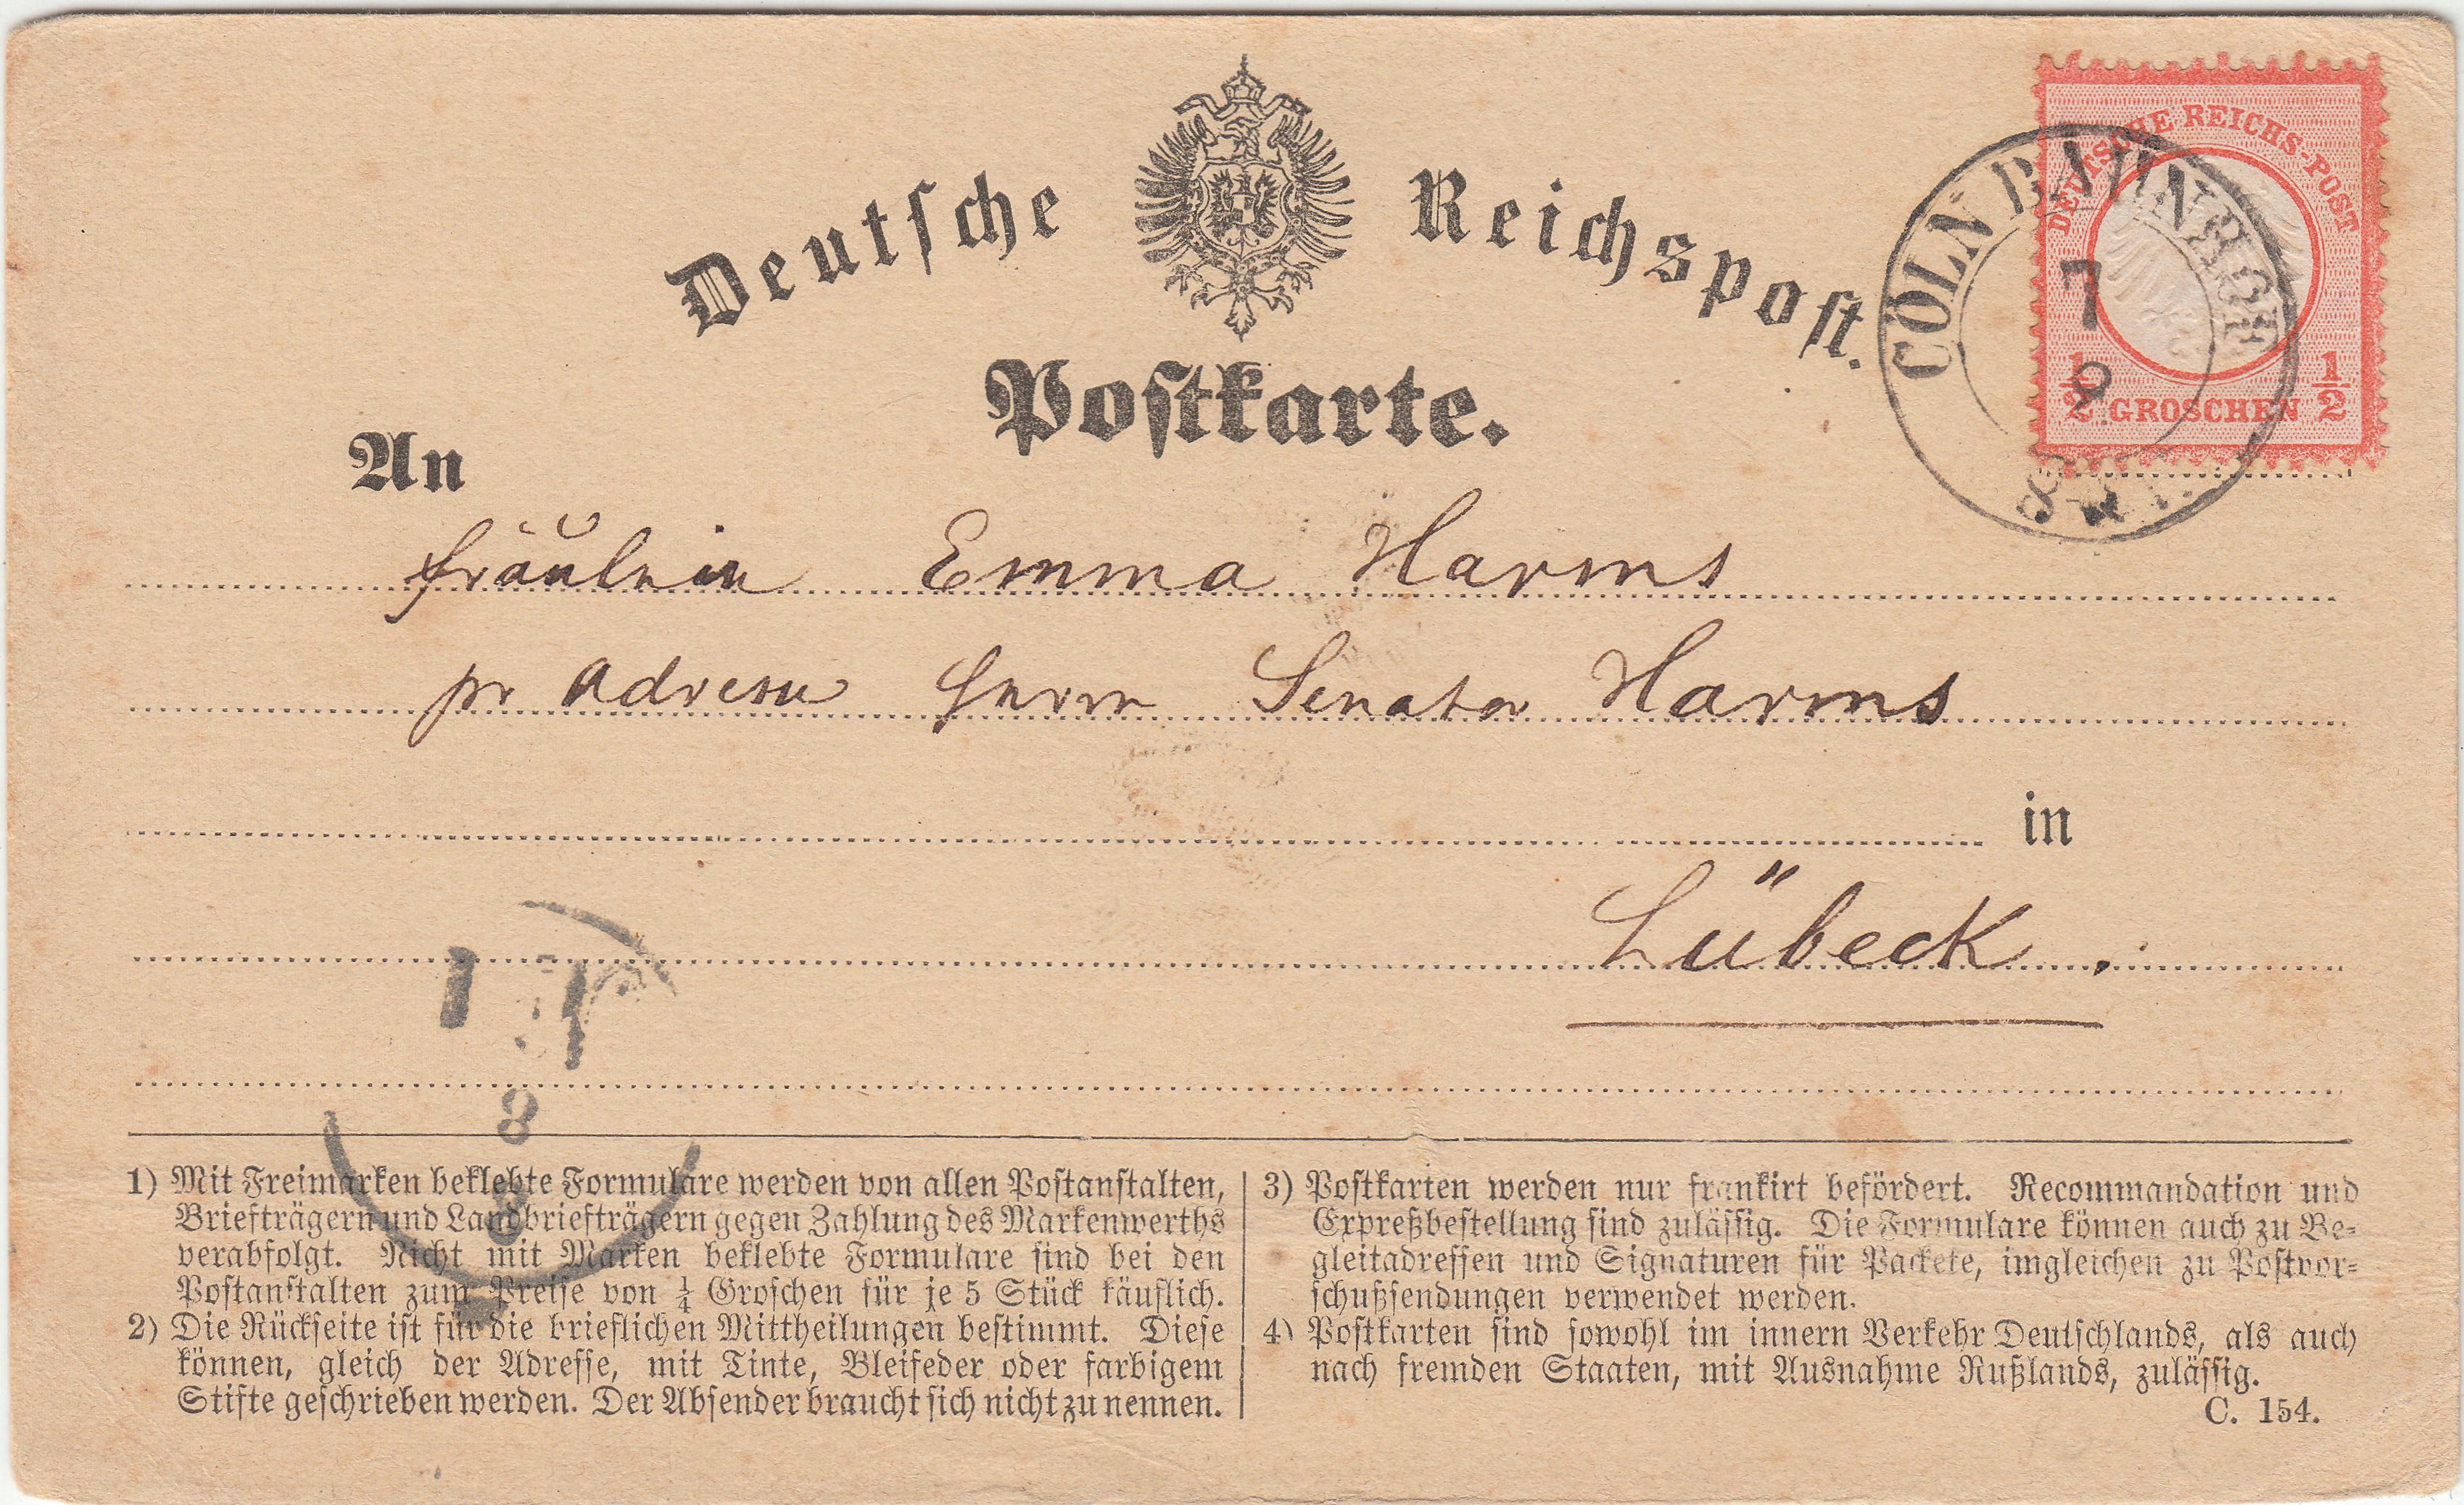 Deutsche Reichspost.
Postkarte.
DEUTSCHE REICHS-POST
½ GROSCHEN ½
CÖLN BAHNHOF
7
9
An
Fräulein Emma Harms
pr Adresse Herrn Senator Harms
in
Lübeck.
8
1) Mit Freimarken beklebte Formulare werden von allen Postanstalten,
Briefträgern und Landbriefträgern gegen Zahlung des Markenwerths
verabfolgt. Nicht mit Marken beklebte Formulare sind bei den
Postanstalten zum Preise von ¼ Groschen für je 5 Stück käuflich.
2) Die Rückseite ist für die brieflichen Mittheilungen bestimmt. Diese
können, gleich der Adresse, mit Tinte, Bleifeder oder farbigem
Stifte geschrieben werden. Der Absender braucht sich nicht zu nennen.
3) Postkarten werden nur frankirt befördert. Recommandation und
Expreßbestellung sind zulässig. Die Formulare können auch zu Be-
gleitadressen und Signaturen für Packete, imgleichen zu Postvor-
schußsendungen verwendet werden.
4) Postkarten sind sowohl im innern Verkehr Deutschlands, als auch
nach fremden Staaten, mit Ausnahme Rußlands, zulässig.
C. 154.